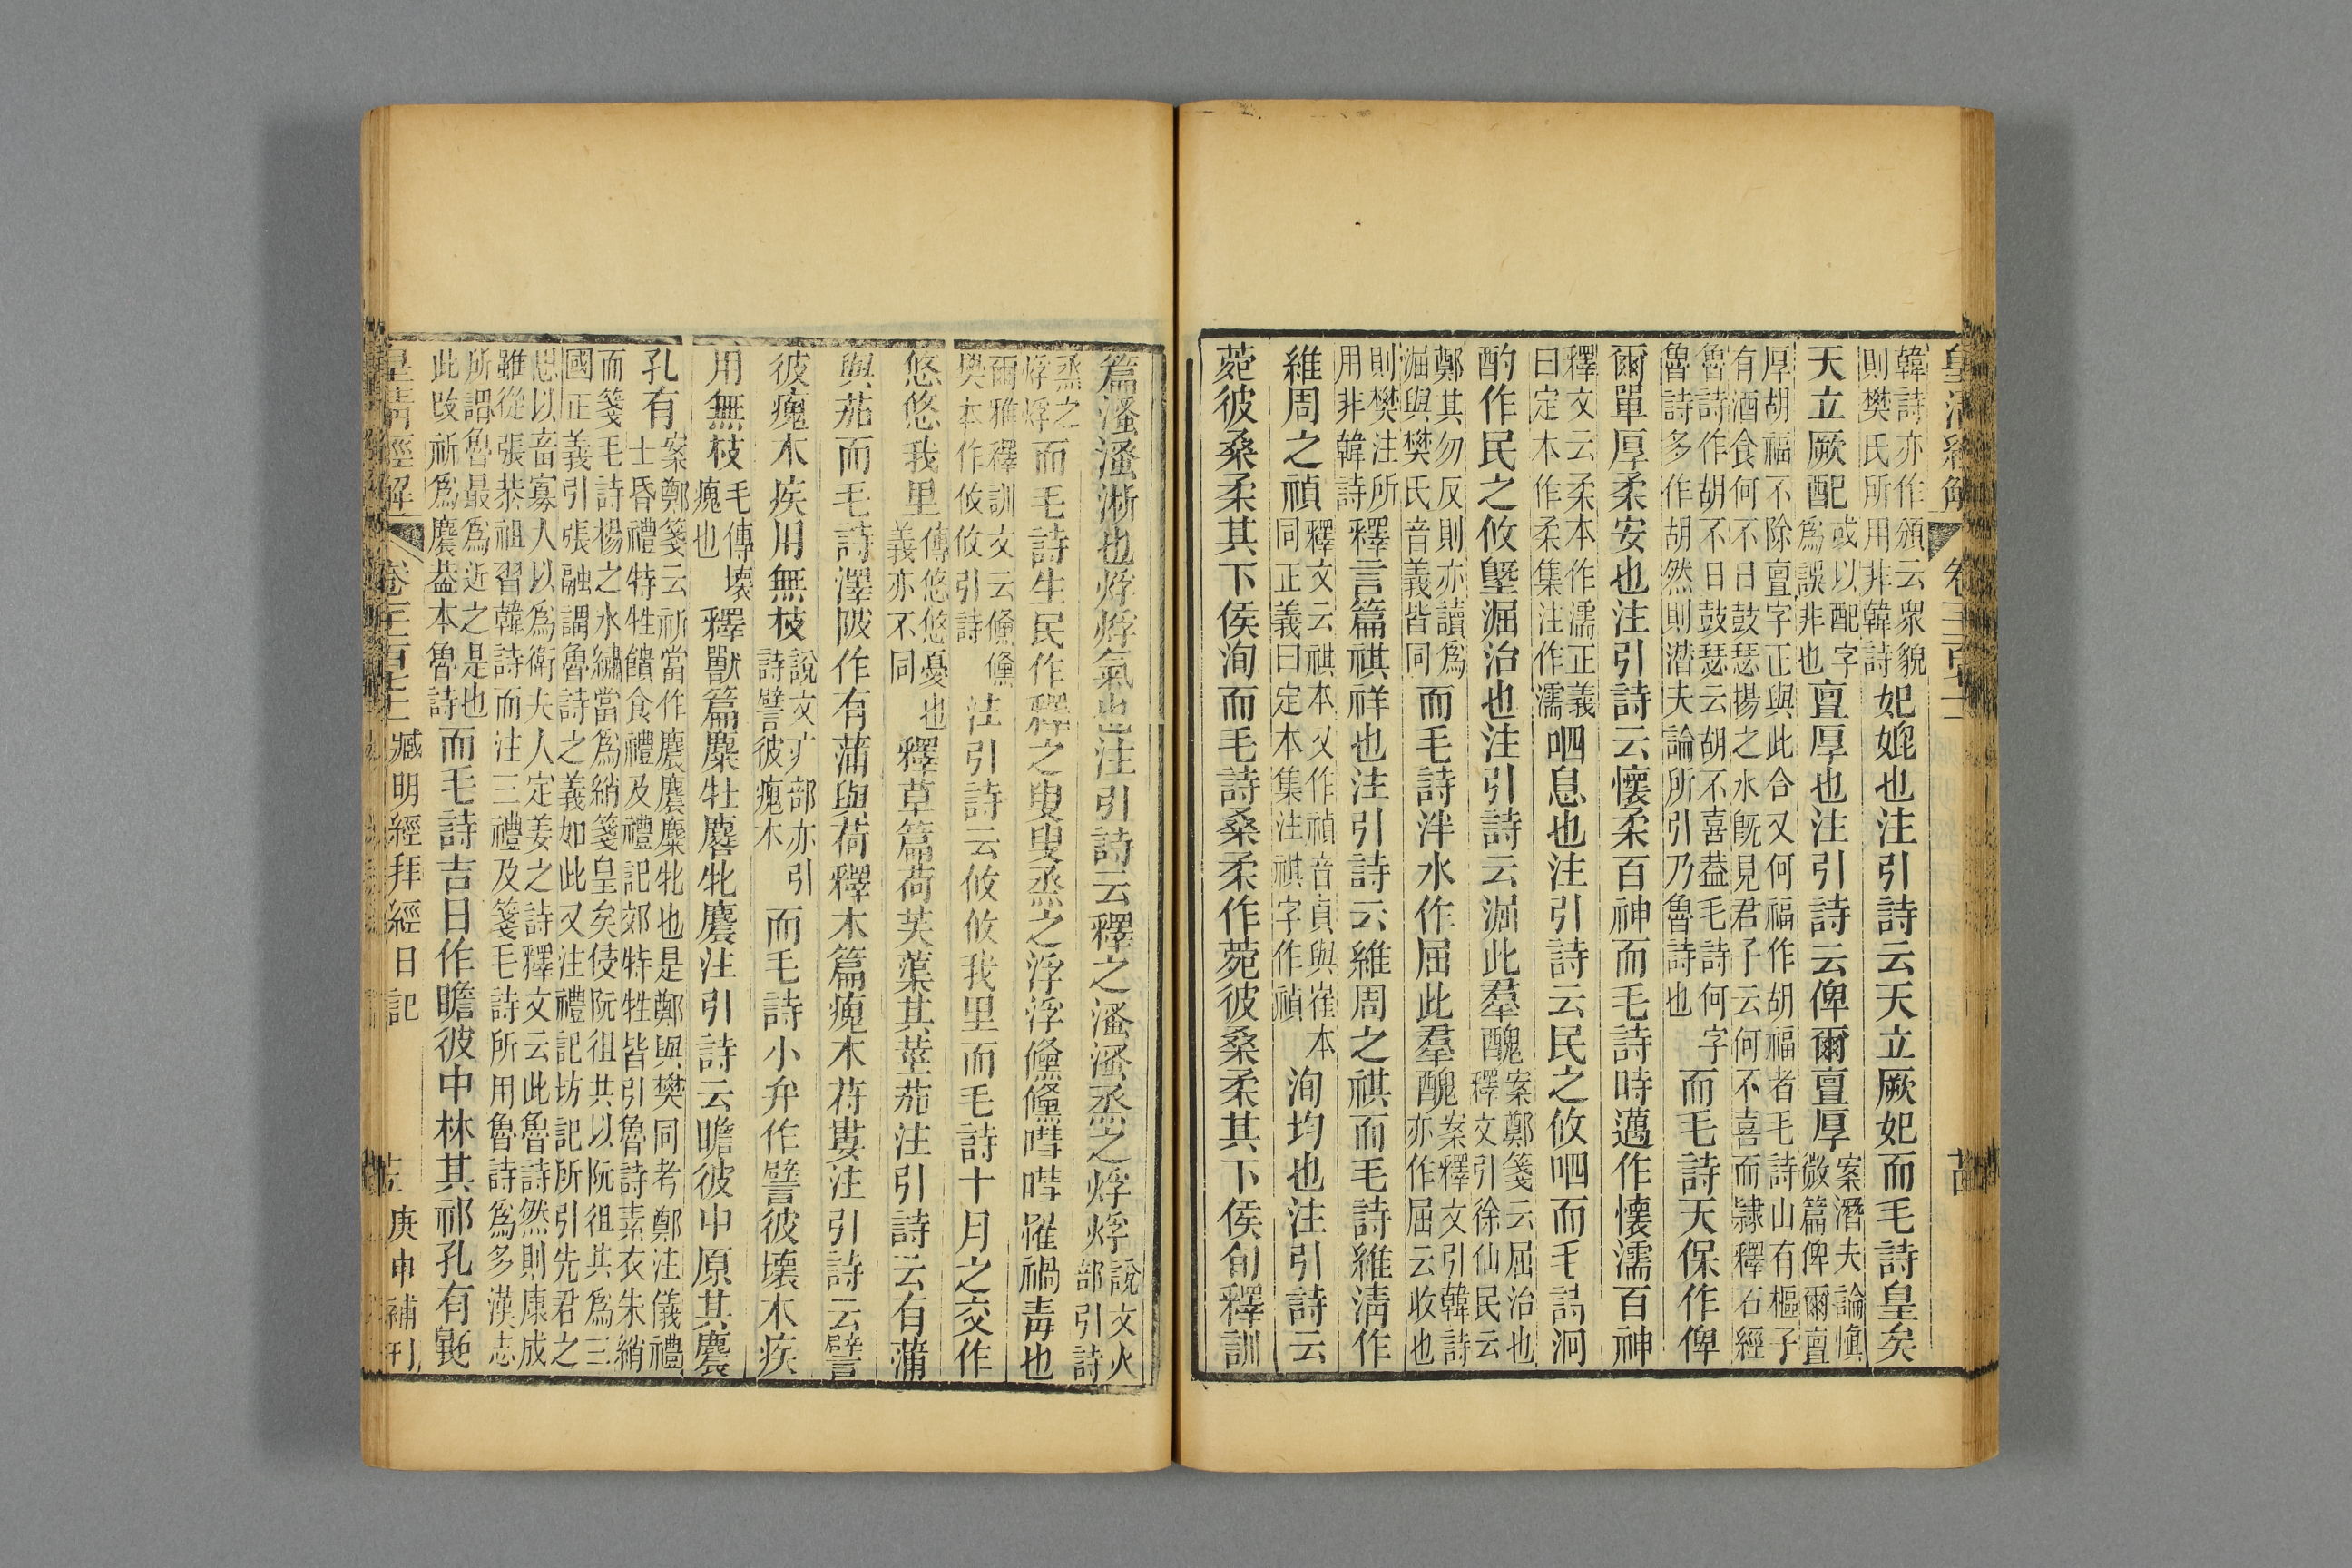 皇清經解 卷 
韓詩亦作頒云衆貌
則樊氏所用非韓詩 妃媲也注引詩云天立厥妃而毛詩皇矣
天立厥配 或以配字
爲誤非也 亶厚也注引詩云俾爾亶厚 案潛夫論愼
微篇俾爾亶
厚胡福不除亶字正與此合又何福作胡福者毛詩山有樞子
有酒食何不日鼓瑟揚之水旣見君子云何不喜而隷釋石經
魯詩作胡不日鼓瑟云胡不喜葢毛詩何字
魯詩多作胡然則潛夫論所引乃魯詩也 而毛詩天保作俾
爾單厚柔安也注引詩云懷柔百神而毛詩時邁作懷濡百神
釋文云柔本作濡正義
曰定本作柔集注作濡 呬息也注引詩云民之攸呬而毛詩泂
酌作民之攸墍淈治也注引詩云淈此羣醜 案鄭箋云屈治也
釋文引徐仙民云
鄭其勿反則亦讀爲
淈與樊氏音義皆同 而毛詩泮水作屈此羣醜 案釋文引韓詩
亦作屈云收也
則樊注所
用非韓詩 釋言篇祺祥也注引詩云維周之祺而毛詩維淸作
維周之禎 釋文云祺本又作禎音貞與崔本
同正義曰定本集注祺字作禎 洵均也注引詩云
菀彼桑柔其下侯洵而毛詩桑柔作菀彼桑柔其下侯旬釋訓
篇溞溞淅也烰烰氣也注引詩云釋之溞溞烝之烰烰 說文火
部引詩
烝之
烰烰 而毛詩生民作釋之叟叟烝之浮浮儵儵嘒嘒罹禍毒也
爾雅釋訓文云儵儵
樊本作攸攸引詩 注引詩云攸攸我里而毛詩十月之交作
悠悠我里 傳悠悠憂也
義亦不同 釋草篇荷芙蕖其莖茄注引詩云有蒲
與茄而毛詩澤陂作有蒲與荷釋木篇瘣木苻婁注引詩云譬
彼瘣木疾用無枝 說文疒部亦引
詩譬彼瘣木 而毛詩小弁作譬彼壞木疾
用無枝 毛傳壞
瘣也 釋獸篇麋牡麔牝麎注引詩云瞻彼中原其麎
孔有 案鄭箋云祈當作麎麎麋牝也是鄭與樊同考鄭注儀禮
士昏禮特牲饋食禮及禮記郊特牲皆引魯詩素衣朱綃
而箋毛詩揚之水繡當爲綃箋皇矣侵阮徂共以阮徂共爲三
國正義引張融謂魯詩之義如此又注禮記坊記所引先君之
思以畜寡人以爲衛夫人定姜之詩釋文云此魯詩然則康成
雖從張恭祖習韓詩而注三禮及箋毛詩所用魯詩爲多漢志
所謂魯最爲近之是也
此改祈爲麎葢本魯詩 而毛詩吉日作瞻彼中林其祁孔有
皇清經解 卷 臧明經拜經日記 庚申補刊